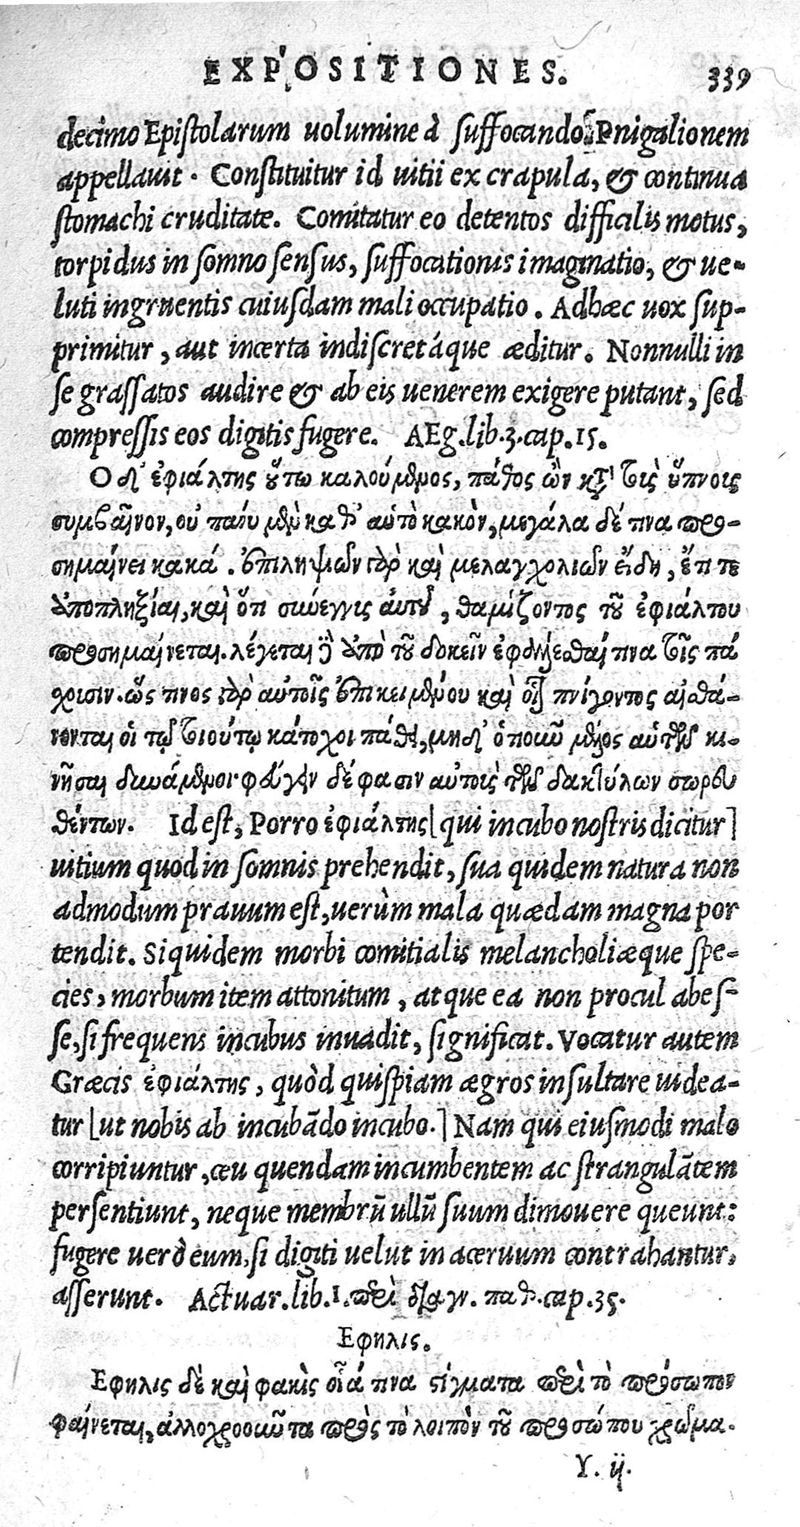 EXPOSITIONES. 339
decimo Epistolarum uolumine à suffocando Pnigalionem
appellauit. Constituitur id uitii ex crapula, & continua
stomachi cruditate. Comitatur eo detentos difficilis motus,
torpidus in somno sensus, suffocationis imaginatio, & ue-
luti ingruentis cuiusdam mali occupatio. Adhæc uox sup-
primitur, aut incerta indiscretáque æditur. Nonnulli in
se grassatos audire & ab eis uenerem exigere putant, sed
compressis eos digitis fugere. AEg. lib. 3. cap. 15.
Ο δ' ἐφιάλτης οὕτω καλούμενος, πάθος ὢν κατὰ τοὺς ὕπνους
συμβαῖνον, οὐ πάνυ μὲν καθ' αὑτὸ κακὸν, μεγάλα δέ τινα προ-
σημαίνει κακά. ἐπιληψιῶν γὰρ καὶ μελαγχολιῶν εἴδη, ἔτι τε
ἀποπληξίαι, καὶ ὅτι σύνεγγις αὐτοῦ, θαμίζοντος τοῦ ἐφιάλτου
προσημαίνεται. λέγεται δὲ ἀπὸ τοῦ δοκεῖν ἐφάλλεσθαί τινα τοῖς πά
χουσιν. ὥς τινος γὰρ αὐτοῖς ἐπικειμένου καὶ οἷον πνίγοντος αἰσθά-
νονται οἱ τῷ τοιούτῳ κάτοχοι πάθει, μηδ' ὁποιοῦν μέρος αὑτῶν κι-
νῆσαι δυνάμενοι· φεύγειν δέ φασιν αὐτοὺς τῶν δακτύλων σωρευ
θέντων. Id est, Porro ἐφιάλτης [qui incubo nostris dicitur]
uitium quod in somnis prehendit, sua quidem natura non
admodum prauum est, uerùm mala quædam magna por
tendit. Siquidem morbi comitialis melancholiæque spe-
cies, morbum item attonitum, atque ea non procul abes-
se, si frequens incubus inuadit, significat. Vocatur autem
Græcis ἐφιάλτης, quòd quispiam ægros insultare uidea-
tur [ut nobis ab incubādo incubo.] Nam qui eiusmodi malo
corripiuntur, ceu quendam incumbentem ac strangulātem
persentiunt, neque membrū ullū suum dimouere queunt:
fugere uerò eum, si digiti uelut in aceruum contrahantur,
asserunt. Actuar. lib. 1. περὶ διαγν. παθ. cap. 35.
Εφηλις.
Εφηλις δὲ καὶ φακὸς οἷά τινα στίγματα περὶ τὸ πρόσωπον
φαίνεται, ἀλλοχροοῦντα πρὸς τὸ λοιπὸν τοῦ προσώπου χρῶμα.
Y. ij.